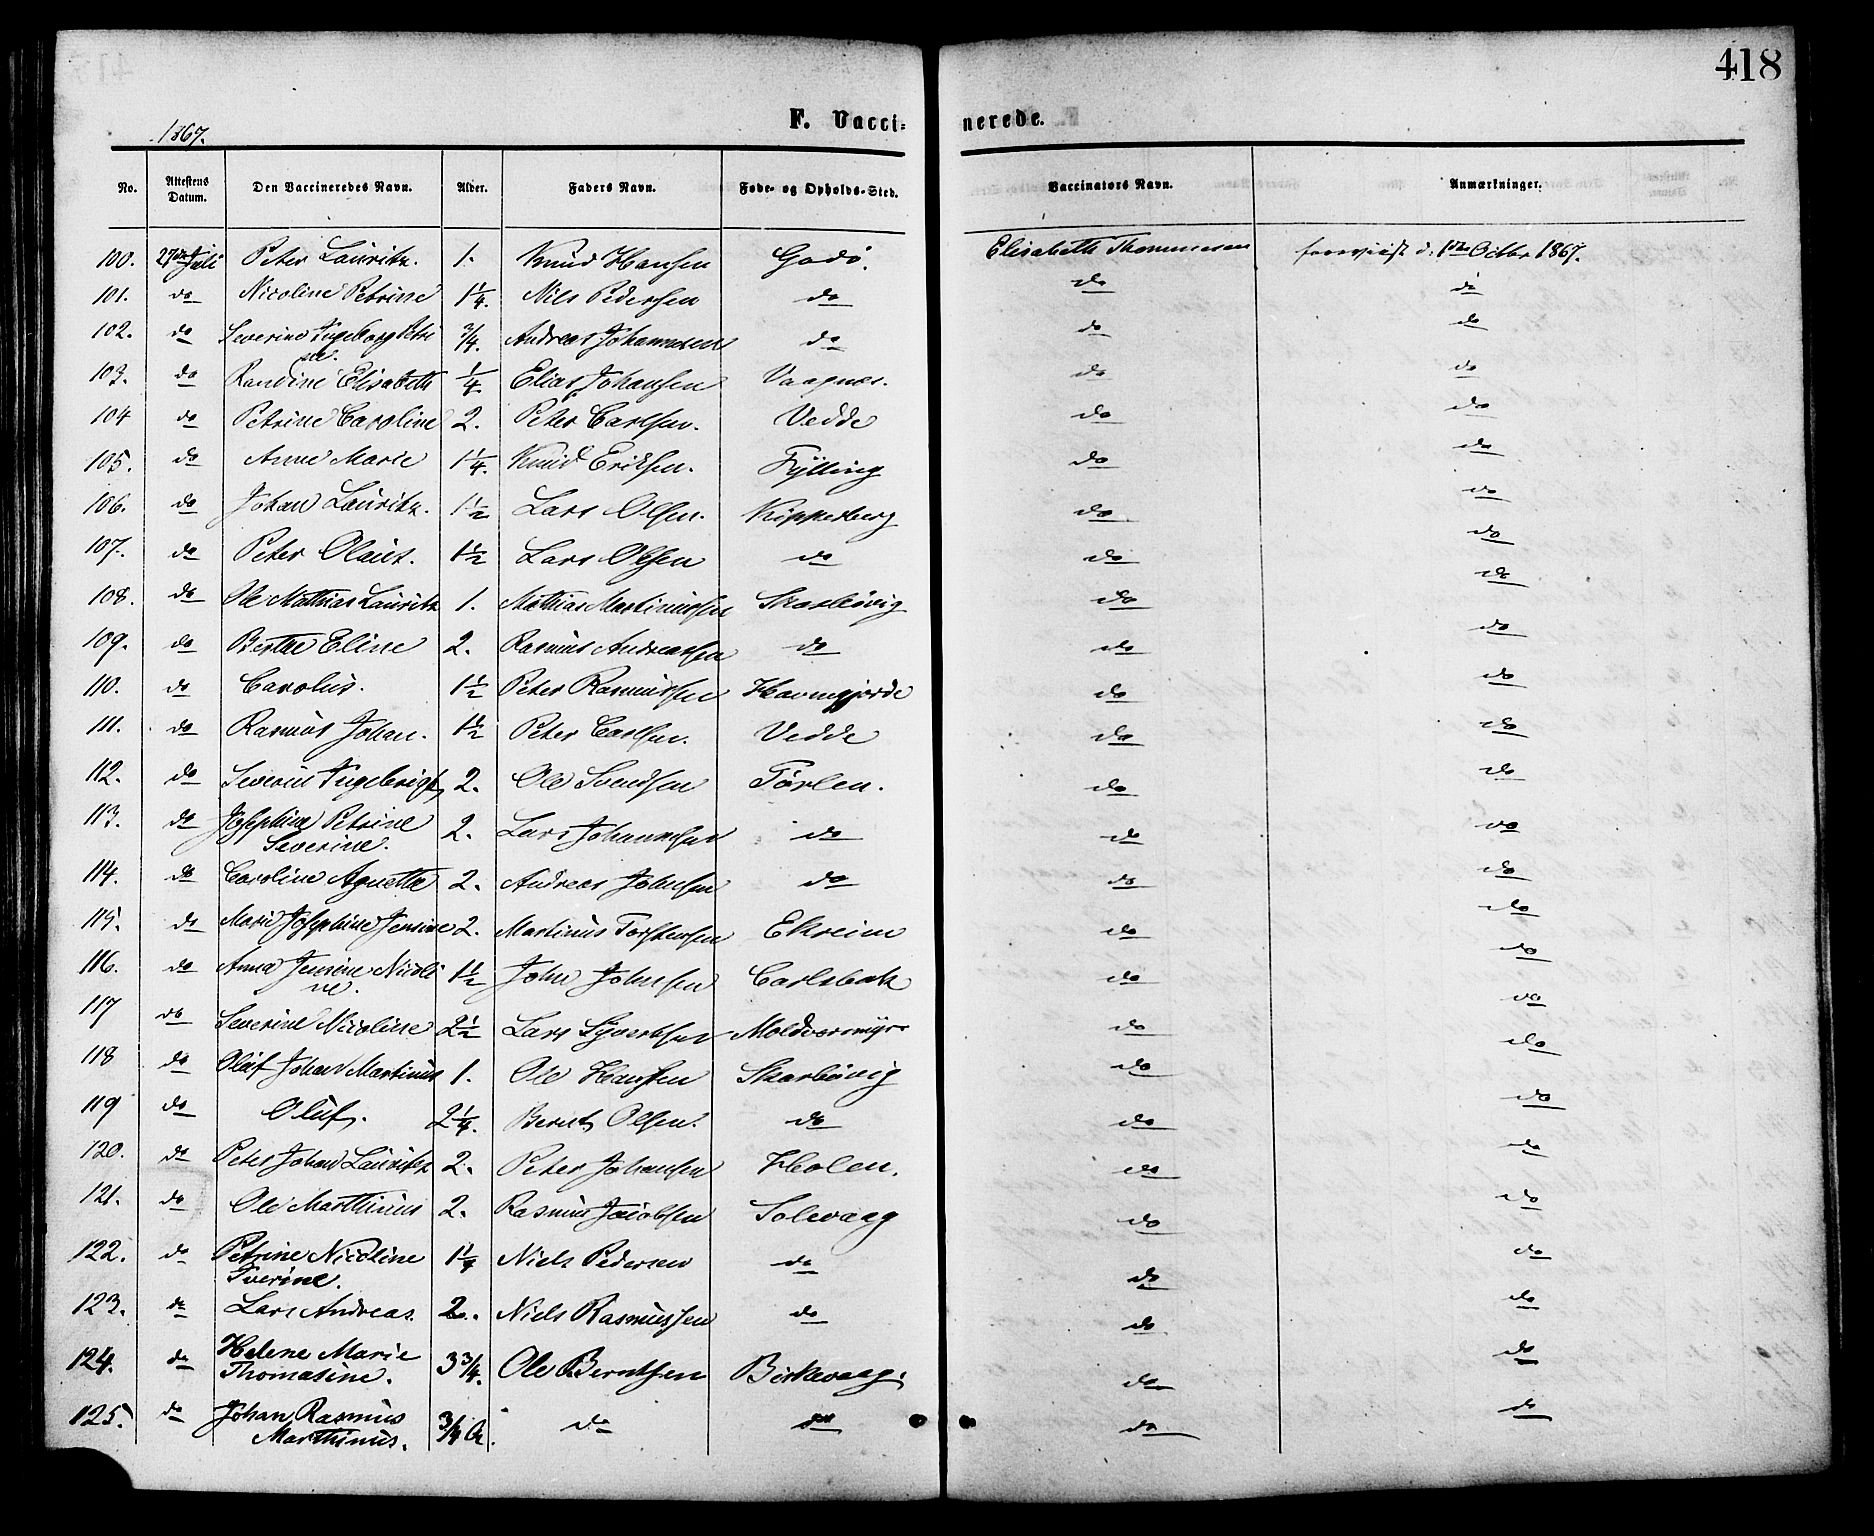 418
1867.
F. Vacci= nerede.
No. Attestens Datum. Den Vaccineredes Navn. Alder. Faders Navn. Føde- og Opholds-Sted. Vaccinators Navn. Anmærkninger.
100. 27de Juli Peter Lauritz. 1. Knud Hansen Godö. Elisabeth Thommesen foreviist d. 1ste Octbr 1867.
101. do Nicoline Petrine 1 1/4. Nils Pedersen do do do
102. do Severine Ingeborg Petri 3/4. Andreas Johannesen do do do
ne.
103. do Randine Elisabeth 1/4 Elias Johansen Vaagnes. do do
104 do Petrine Caroline 2. Peter Carlsen. Vedde do do
105. do Anne Marie 1 1/4. Knud Eriksen. Fylling do do
106. do Johan Lauritz. 1 1/2 Lars Olsen. Kipperberg do do
107. do Peter Olaus. 1 1/2 Lars Olsen do do do
108. do Ole Mathias Lauritz 1. Mathias Martinussen Skarbövig do do
109. do Berthe Eline 2. Rasmus Andreassen do do do
110. do Carolus. 1 1/2 Peter Rasmussen Havnegjerde do do
111. do Rasmus Johan. 1 1/2 Peter Carlsen. Vedde do do
112. do Severin Ingebrigt 2. Ole Svendsen Törlen. do do
113. do Josephine Petrine 2. Lars Johannesen do do do
Severine.
114. do Caroline Agnethe 2. Andreas Johnsen do do do
115. do Marie Josephine Jensine 2. Martinus Torstensen Ekreim do do
116. do Anna Jensine Nicoli 1 1/2 John Johnsen Carlsbak do do
ne.
117 do Severine Nicoline 2 1/2 Lars Syvertsen Moldversmyr do do
118 do Oluf Johan Martinus 1. Ole Hansen Skarbövig do do
119 do Oluf. 2 1/4. Bernt Olsen. do do do
120. do Peter Johan Lauritz 2. Peter Johansen Holen. do do
121. do Ole Marthinus 2. Rasmus Jacobsen Solevaag do do
122. do Petrine Nicoline 1 1/4 Niels Pedersen do do do
Iverine.
123. do Lars Andreas. 2. Niels Rasmussen do do do
124. do Helene Marie 3 3/4. Ole Berntsen Birkevaag. do do
Thomasine.
125. do Johan Rasmus 3/4 Ar. do do do do
Marthinus.